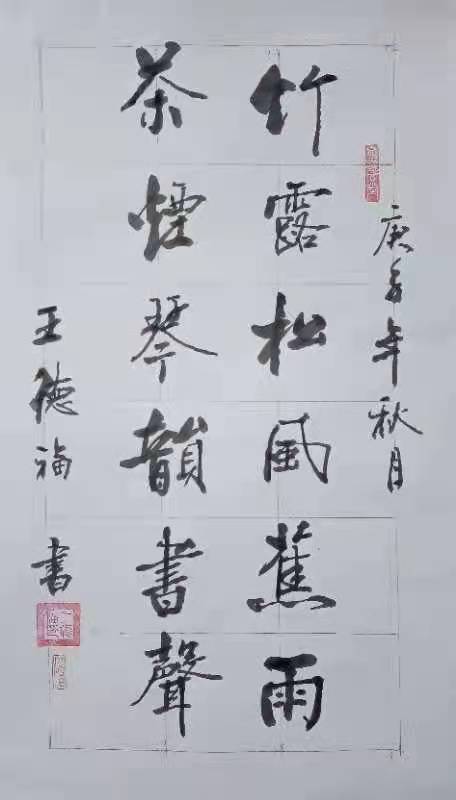 庚子年秋月
竹露松風蕉雨
茶煙琴韻書聲
王德福書